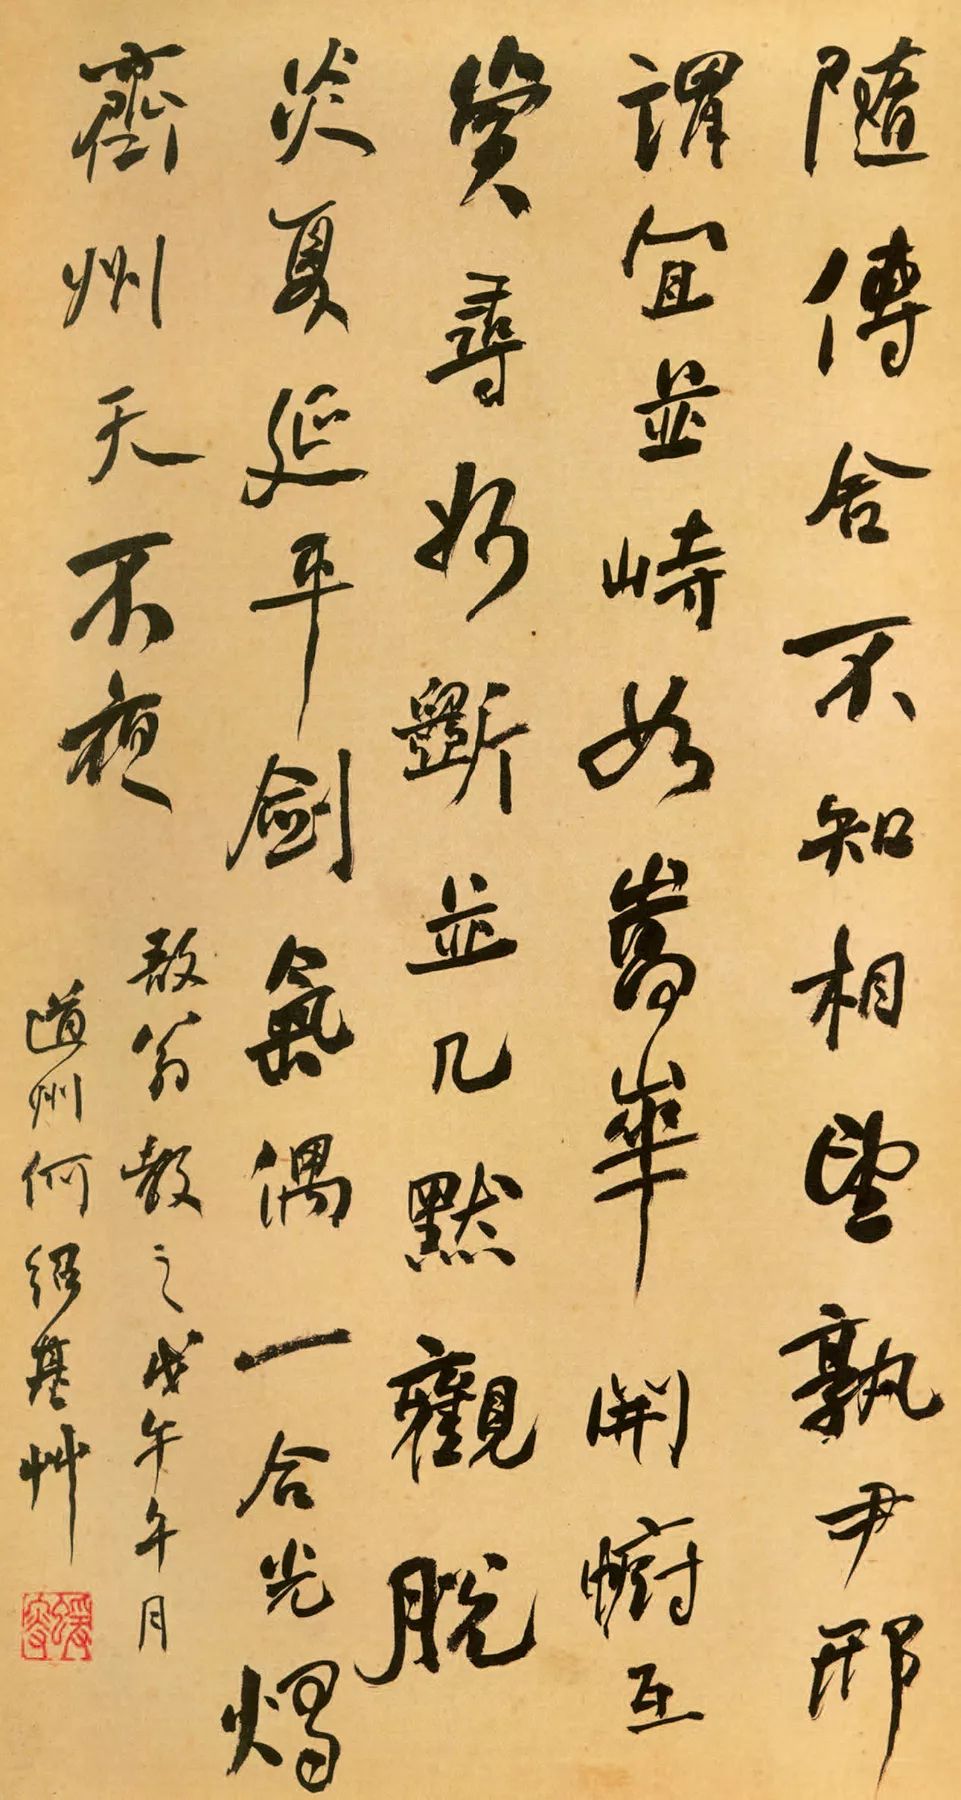 隨傳舍不知相望孰尹邢
謂宜並峙如嵩華開幮互
質尋妙斵並几默觀脫
炎夏延平劍氣偶一合光燭
齊州天不夜
翁教之戊午午月
道州何紹基艸